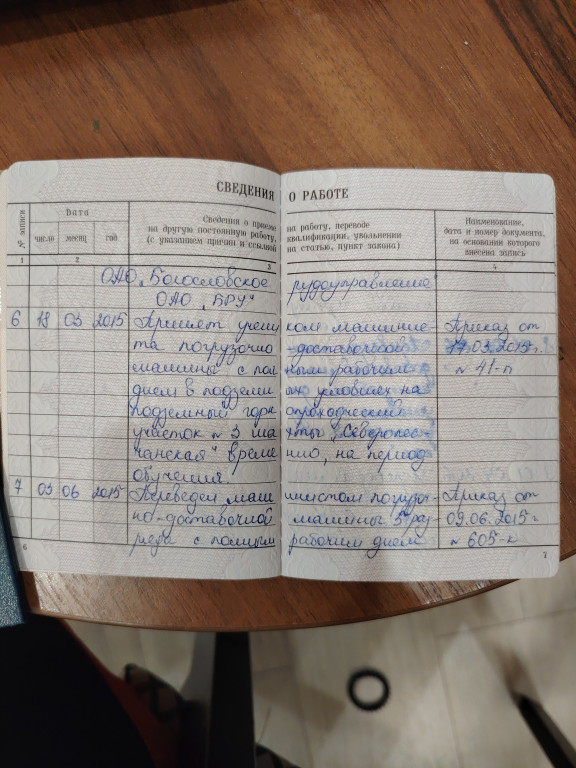 СВЕДЕНИЯ О РАБОТЕ
№ записи
Дата
число месяц год
Сведения о приеме на работу, переводе
на другую постоянную работу, квалификации, увольнении
(с указанием причин и ссылкой на статью, пункт закона)
Наименование,
дата и номер документа,
на основании которого
внесена запись
1 2 3 4
ОАО „Богословское рудоуправление"
ОАО „БРУ"
6 18 03 2015 Принят учеником машинис- Приказ от
та погрузочно-доставочной 17.03.2015 г.
машины с полным рабочим № 41-п
днем в подземных условиях на
подземный горнопроходческий
участок № 3 шахты „Северопес-
чанская" временно, на период
обучения.
7 09 06 2015 Переведен машинистом погрузоч- Приказ от
но-доставочной машины 5 раз- 09.06.2015 г
ряда с полным рабочим днем № 605-к
6 7